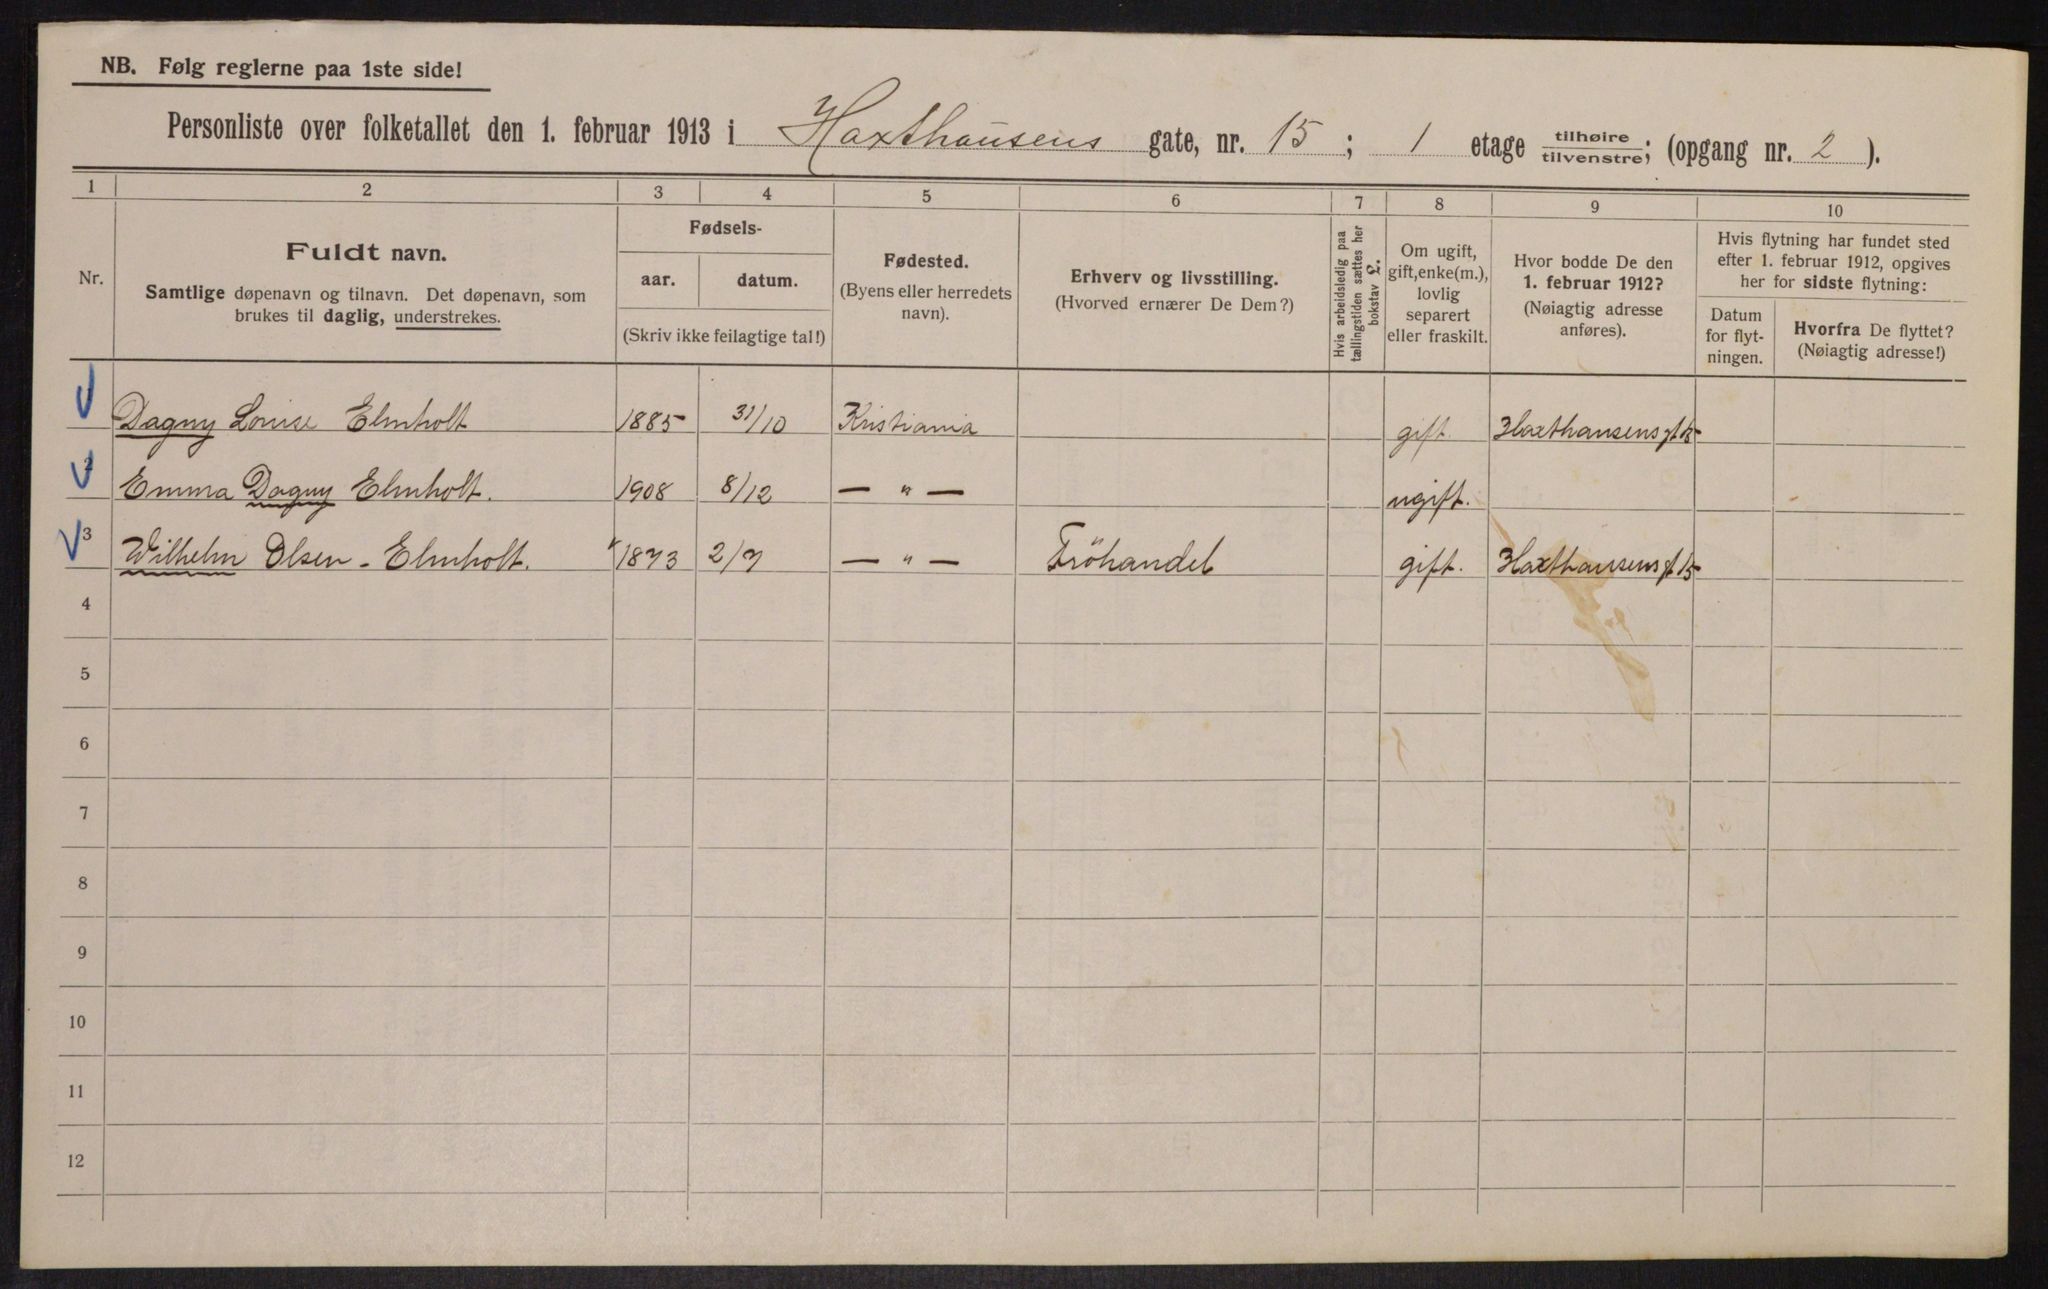 NB. Følg reglerne paa 1ste side!
Personliste over folketallet den 1. februar 1913 i Haxthausens gate, nr. 15 ; 1 etage tilhøire tilvenstre; (opgang nr. 2 ).
1 2 3 4 5 6 7 8 9 10
Nr.
Fuldt navn.
Samtlige døpenavn og tilnavn. Det døpenavn, som
brukes til daglig, understrekes.
Fødsels-
aar. datum.
(Skriv ikke feilagtige tal!)
Fødested.
(Byens eller herredets
navn).
Erhverv og livsstilling.
(Hvorved ernærer De Dem?)
Hvis arbeidsledig paa
tællingstiden sættes her
bokstav L.
Om ugift,
gift, enke(m.),
lovlig
separert
eller fraskilt.
Hvor bodde De den
1. februar 1912?
(Nøiagtig adresse
anføres).
Hvis flytning har fundet sted
efter 1. februar 1912, opgives
her for sidste flytning:
Datum
for flyt-
ningen.
Hvorfra De flyttet?
(Nøiagtig adresse!)
Dagny Louise Elmholt 1885 31/10 Kristiania gift. Haxthausens gt 15
2 Emma Dagny Elmholt. 1908 8/12 — " — ugift.
3 Wilhelm Olsen - Elmholt. 1873 2/7 — " — Fröhandel gift. Haxthausens gt 15
4
5
6
7
8
9
10
11
12